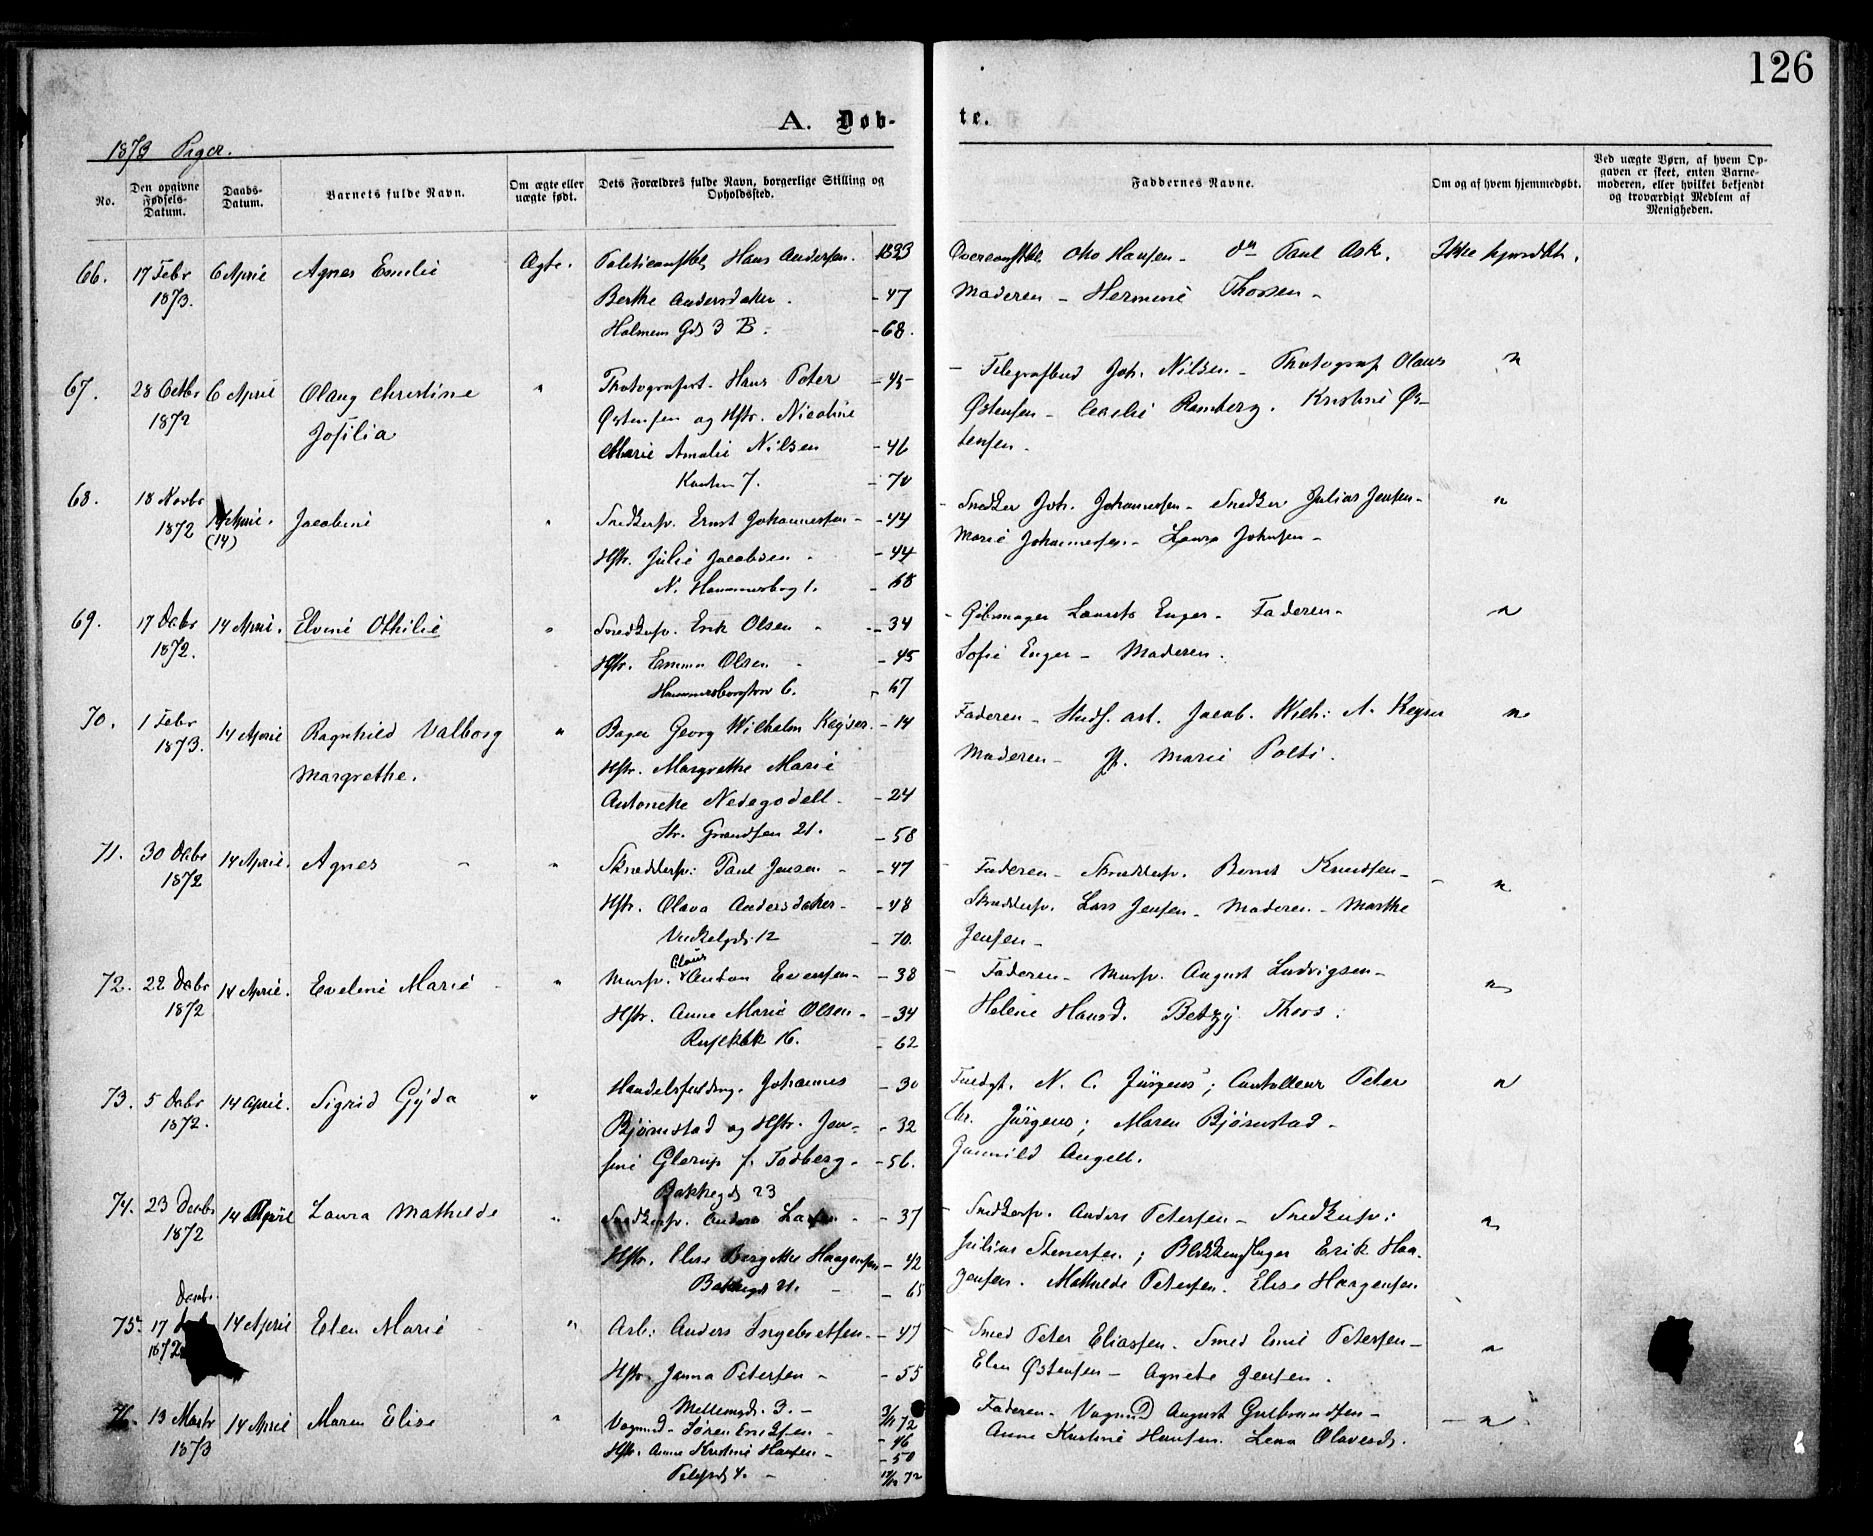 126
A. Døb-
te.
1873 Piger.
No.
Den opgivne Fødsels-Datum.
Daabs-Datum.
Barnets fulde Navn.
Om ægte eller uægte født.
Dets Forældres fulde Navn, borgerlige Stilling og Opholdssted.
Faddernes Navne.
Om og af hvem hjemmedøbt.
Ved uægte Børn, af hvem Op-
gaven er skeet, enten Barne-
moderen, eller hvilket bekjendt
og troværdigt Medlem af
Menigheden.
66. 17 Febr 6 April Agnes Emilie Ægte. Hans Andersen. 1833 Otto Hansen - Paul Ask. Ikke hjmdbt.
1873. Berthe Andersdatter. - 47 Moderen - Hermine Thossen -
Holmens Gd 3 B. - 68.
67. 28 Octbr 6 April Olaug Christine " Photograf. Hans Peter - 45 - Telegrafbud Joh. Nilsen - Photograf Olaus "
1872 Jofilia Østensen og Hstr. Nicoline Østensen - Ramberg. Kristine Øs-
Marie Amalie Nilsen - 46 tensen.
7. - 70
68. 18 Novbr April. Jacobine " Snedkersv. Ernst Johannesen - - 44 - Snedker Joh. Johannesen - Snedker Julius Jensen - "
1872 (14) Hstr. Julie Jacobsen - - 44 Marie Johannesen - Laura Johnsen -
N. Hammersbog 1. - 68
69. 17 Decbr 14 April. Elvine Othilie " Snedkersv. Erik Olsen - - 34 - Laurits Enger - Faderen - "
1872. Hstr. Emma Olsen - - 45 Sofie Enger - Moderen.
6. - 67
70. 1 Febr 14 April Ragnhild Valborg " Bager Georg Wilhelm Keyser. - 14 Faderen - Stud. art. Jacob. Wilh: A. Keyser "
1873. Margrethe. Hstr. Margrethe Marie Moderen - Marie Polti.
Nedegodell - - 24
Str. Grændsen 21. - 58
71. 30 Decbr 14 April. Agnes - " Skrædersv: Paul Jensen - - 47 - Faderen - Skrædersv. Bernt Knudsen - "
1872 Hstr. Olava Andersdatter - - 48 Skrædersv. Lars Jensen - Moderen - Marthe
12 - 70. Jensen -
Claus
72. 22 Decbr 14 April. Eveline Marie - " Mursv. Anton Evensen - - 38 - Faderen - Mursv. August Ludvigsen - "
1872 Hstr. Anne Marie Olsen - - 34 Helene Hansd. Betzy Thors.
16. - 62
73. 5 Decbr 14 April. Sigrid Gyda " Johannes - 30 N. C. Jürgens; Peter "
1872. Bjørnstad og Hstr. Jen- - 32 Chr. Jürgens; Maren Bjørnstad -
sine Glerup f. Fodberg - - 56. Gunnild Angell.
Bakkegd 23
74. 23 Decbr 14 April Laura Mathilde " Snedkersv. Anders Larsen - - 37 - Snedkersv. Anders Petersen - Snedkersv: "
1872 Hstr. Elise Bergette Haagensen - 42 Julius Stenersen; Erik Haa-
Bakkegd 21. - 65 gensen. Mathilde Petersen. Elise Haagensen
Decbr.
75. 17 14 April Elen Marie - " Arb: Anders Ingebretsen - - 47 - Smed Peter Eliassen - Smed Petersen - "
1872 Hstr. Janna Petersen - - 55 Elen Østensen - Agnete Jensen.
Mellemgd. 3. - 72
76. 13 Marts 14 April Maren Elise " Vognmd. Søren Eriksen - - 46 Faderen - Vognmd August Gulbrandsen - "
1873 Hstr. Anne Kristine Hansen - - 50 Anne Kristine Hansen. Lena Olavesd.
4. - 72